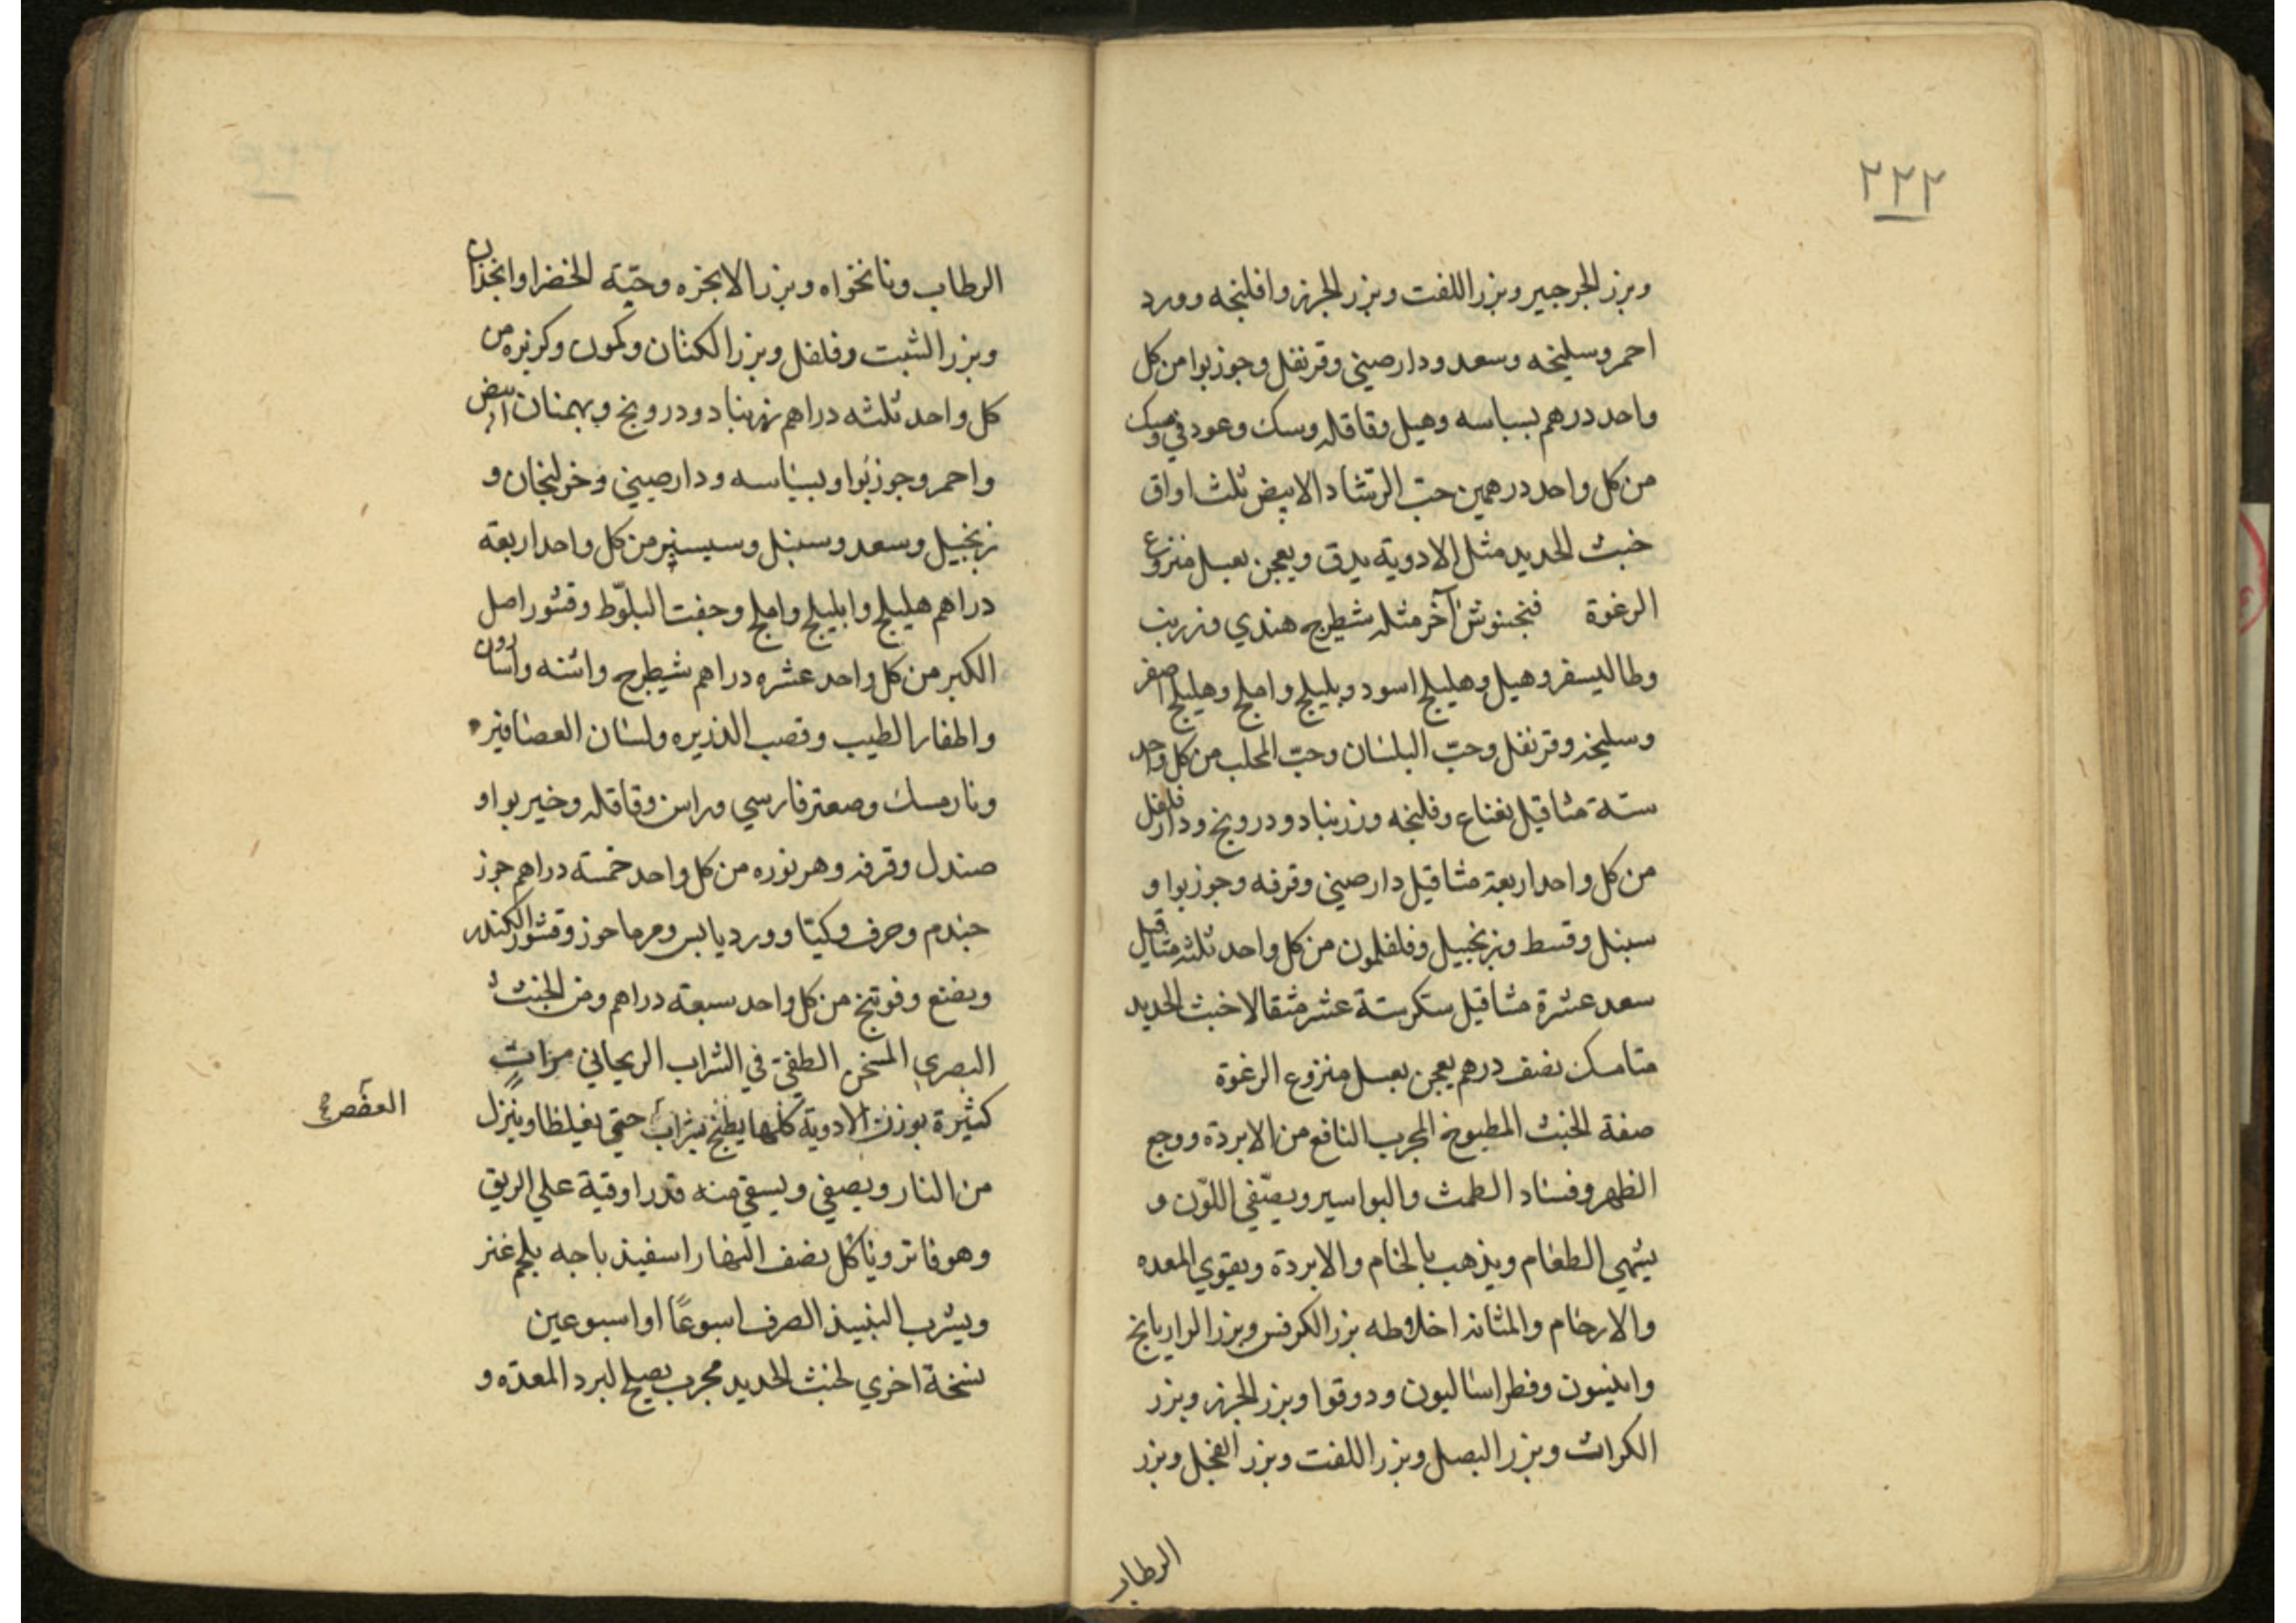 ٢٢٢
وبزر الجرجير وبزر اللفت وبزر الجزر وافلنجه وورد
احمر وسليخه وسعد ودار صيني وقرنفل وجوزبوا من كل
واحد درهم بسباسه وهيل وقاقله وسك وعود في ومسك
من كل واحد درهمين حبّ الرشاد الابيض ثلث اواق
خبث الحديد مثل الادوية يدق ويعجن بعسل منزوع
الرغوة فنجنوش آخر مثله شيطرج هندي وزرنب
وطاليسفر وهيل وهليلج اسود وبليلج واملج وهليلج اصفر
وسليخه وقرنفل وحبّ البلسان وحبّ المحلب من كل واحد
ستة مثاقيل نعناع وفلنجه وزرنباد ودرونج ودار فلفل
من كل واحد اربعة مثاقيل دار صيني وقرفه وجوزبوا و
سنبل وقسط وزنجبيل وفلفلمون من كل واحد ثلثه مثاقيل
سعد عشرة مثاقيل سكر ستة عشر مثقالا خبث الحديد
منا مسك نصف درهم يعجن بعسل منزوع الرغوة
صفة الخبث المطبوخ المجرب النافع من الابردة ووجع
الظهر وفساد الطمث والبواسير ويصّفي اللوّن و
يشهي الطعام ويذهب بالخام والابردة ويقوي المعده
والارحام والمثانه اخلاطه بزر الكرفس وبزر الرازيانج
وانيسون وفطراساليون ودوقوا وبزر الجزر وبزر
الكراث وبزر البصل وبزر اللفت وبزر الفجل وبزر
الرطاب
الرطاب ونانخواه وبزر الانجره وحبّة الخضرا وانجذان
وبزر الشبت وفلفل وبزر الكتان وكمون وكزبره من
كل واحد ثلثه دراهم زرنباد ودرونج وبهمنان ابيض
واحمر وجوزبوا وبسباسه ودار صيني وخولنجان و
زنجبيل وسعد وسنبل وسيسنبر من كل واحد اربعة
دراهم هليلج وابليلج واملج وجفت البلوّط وقشور اصل
الكبر من كل واحد عشره دراهم شيطرج واشنه واسارون
واظفار الطيب وقصب الذريره ولسان العصافير
ونارمسك وصعتر فارسي وراسن وقاقله وخيربوا و
صندل وقرفه وهرنوره من كل واحد خمسة دراهم جوز
جندم وحرف وكيتا وورد يابس ومرماحوز وقشور الكندر
ونعنع وفوتنج من كل واحد سبعة دراهم ومن الخبث
البصري المسخن المطفيّ في الشراب الريحاني مراتٍ
كثيرة بوزن الادوية كلها يطبخ بشراب حتي يغيلظا وينزل
العفص
من النار ويصفي ويسقي منه قدر اوقية علي الريق
وهو فاتر وياكل نصف النهار اسفيذباجه بلحم عنز
ويشرب النبيذ الصرف اسبوعًا او اسبوعين
نسخة اخري لخبث الحديد مجرب يصلح لبرد المعدّه و